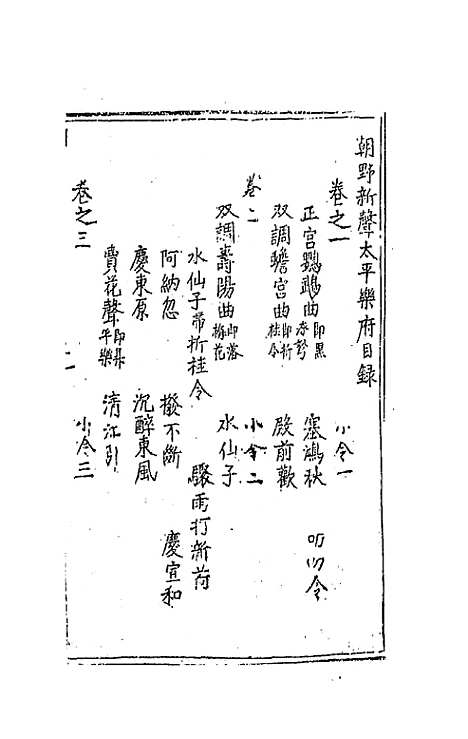 朝野新聲太平樂府目錄
卷之一 小令一
正宮鸚鵡曲即黑 塞鴻秋 叨叨令
双調蟾宮曲即折桂令 殿前歡
卷二 小令二
双調壽陽曲即落梅花 水仙子
水仙子帶折桂令 驟雨打新荷
阿納忽 撥不斷 慶宣和
慶東原 沉醉東風
賣花聲即昇平樂 清江引
卷之三 小令三